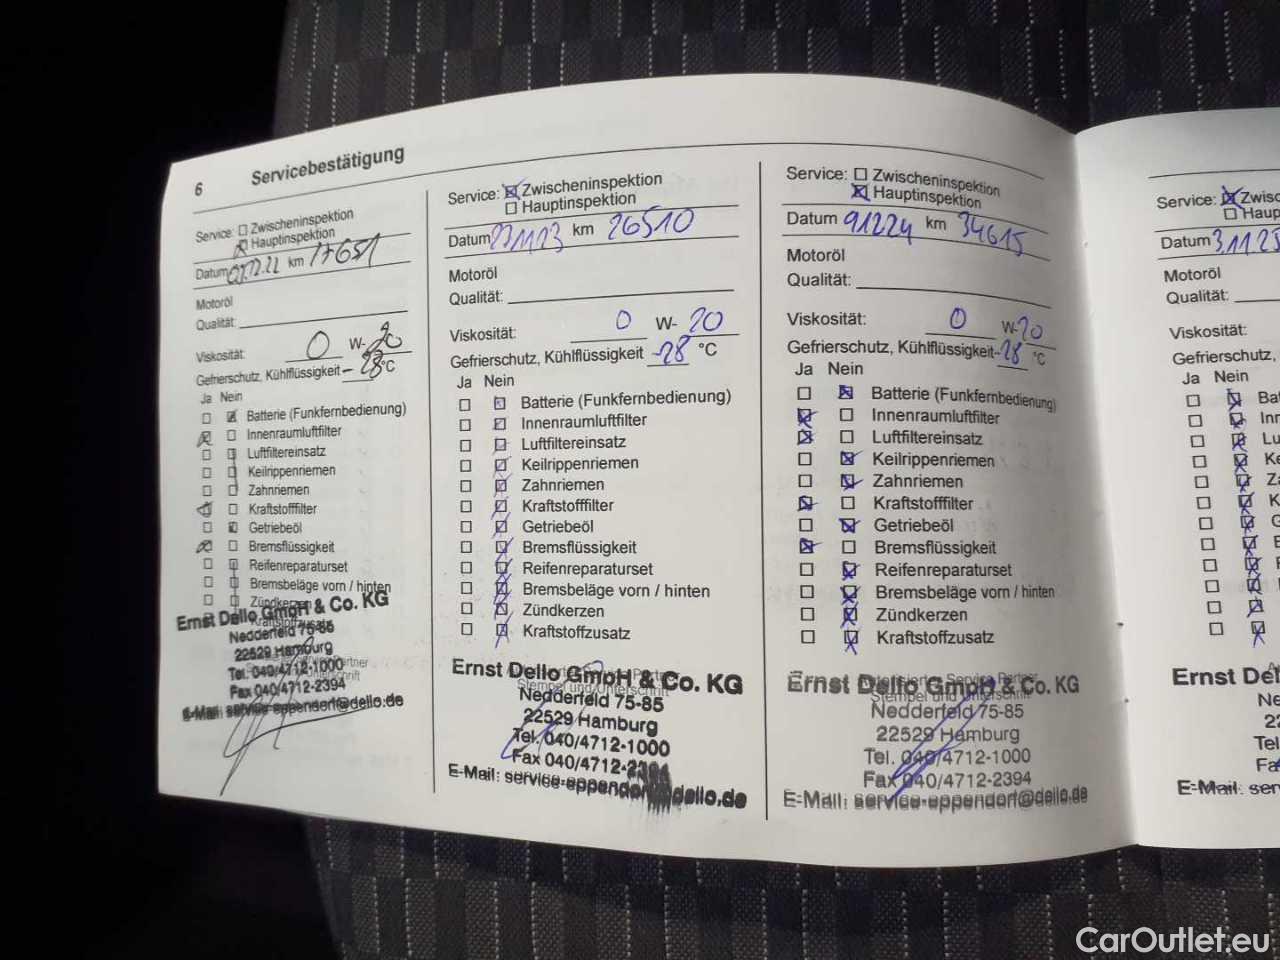 6 Servicebestätigung
Service: Zwischeninspektion
Hauptinspektion
Datum 07.12.22 km 17651
Motoröl
Qualität:
Viskosität: 0 W- 20
Gefrierschutz, Kühlflüssigkeit -28 °C
Ja Nein
Batterie (Funkfernbedienung)
Innenraumluftfilter
Luftfiltereinsatz
Keilrippenriemen
Zahnriemen
Kraftstofffilter
Getriebeöl
Bremsflüssigkeit
Reifenreparaturset
Bremsbeläge vorn / hinten
Zündkerzen
Kraftstoffzusatz
Ernst Dello GmbH & Co. KG
Nedderfeld 75-85
22529 Hamburg
Tel. 040/4712-1000
Fax 040/4712-2394
E-Mail: service-eppendorf@dello.de
Service: Zwischeninspektion
Hauptinspektion
Datum 231123 km 26510
Motoröl
Qualität:
Viskosität: 0 W- 20
Gefrierschutz, Kühlflüssigkeit -28 °C
Ja Nein
Batterie (Funkfernbedienung)
Innenraumluftfilter
Luftfiltereinsatz
Keilrippenriemen
Zahnriemen
Kraftstofffilter
Getriebeöl
Bremsflüssigkeit
Reifenreparaturset
Bremsbeläge vorn / hinten
Zündkerzen
Kraftstoffzusatz
Ernst Dello GmbH & Co. KG
Stempel und Unterschrift
Nedderfeld 75-85
22529 Hamburg
Tel. 040/4712-1000
Fax 040/4712-2394
E-Mail: service-eppendorf@dello.de
Service: Zwischeninspektion
Hauptinspektion
Datum 91224 km 34615
Motoröl
Qualität:
Viskosität: 0 W- 20
Gefrierschutz, Kühlflüssigkeit -28 °C
Ja Nein
Batterie (Funkfernbedienung)
Innenraumluftfilter
Luftfiltereinsatz
Keilrippenriemen
Zahnriemen
Kraftstofffilter
Getriebeöl
Bremsflüssigkeit
Reifenreparaturset
Bremsbeläge vorn / hinten
Zündkerzen
Kraftstoffzusatz
Autorisierter Service Partner
Ernst Dello GmbH & Co. KG
Stempel und Unterschrift
Nedderfeld 75-85
22529 Hamburg
Tel. 040/4712-1000
Fax 040/4712-2394
E-Mail: service-eppendorf@dello.de
Service: Zwisc
Haup
Datum 31125
Motoröl
Qualität:
Viskosität:
Gefrierschutz,
Ja Nein
Bat
Inn
Lu
Ke
Za
K
G
B
R
Ernst Del
Ne
22
Tel
Fa
E-Mail: ser
CarOutlet.eu